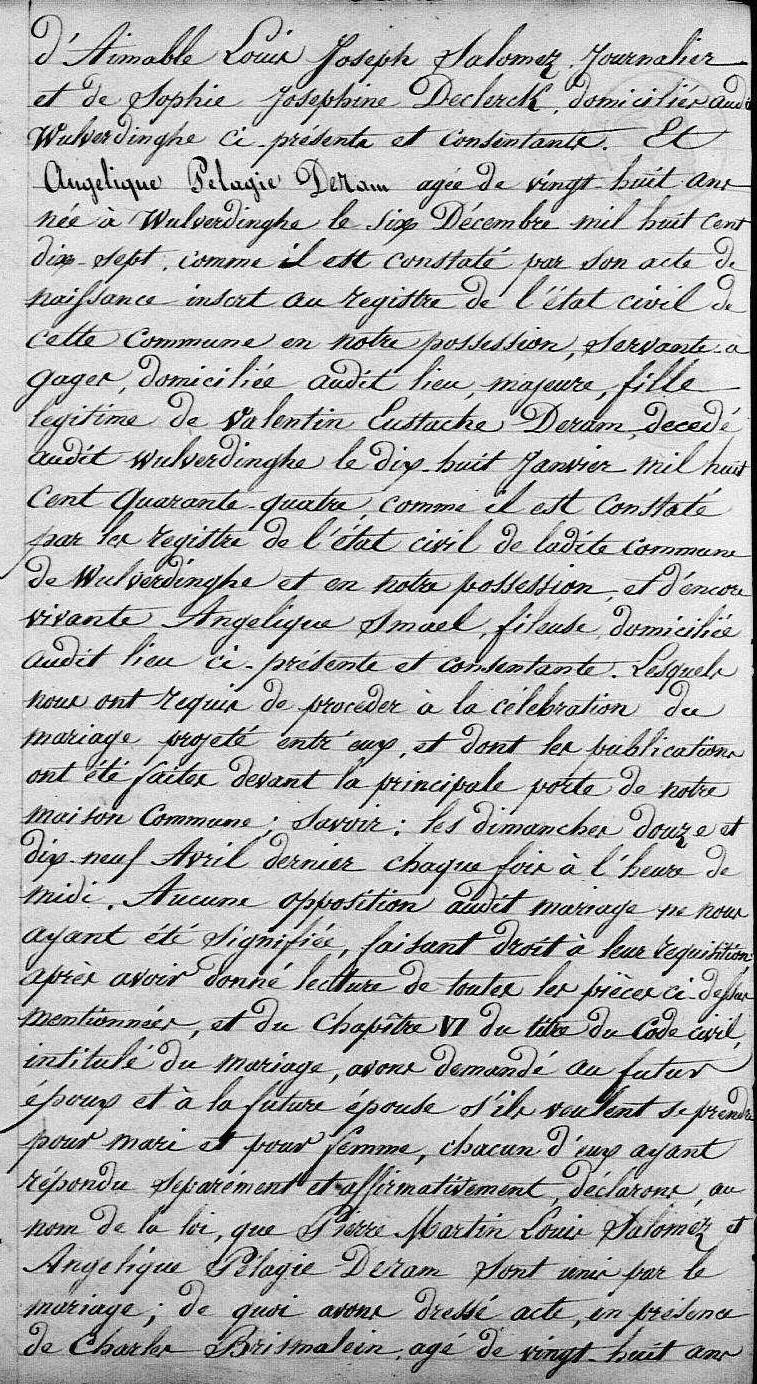 d'Aimable Louis Joseph Salomez, Journalier
et de Sophie Josephine Declerck, domiciliés audit
Wulverdinghe ci-présents et consentants. Et
Angelique Pelagie Deram agée de vingt-huit ans
née à Wulverdinghe le six Décembre mil huit cent
dix-sept, comme il est constaté par son acte de
naissance insert au registre de l'état civil de
cette Commune en notre possession, servante à
gages, domiciliée audit lieu, majeure, fille
legitime de Valentin Eustache Deram, decedé
audit Wulverdinghe le dix-huit Janvier mil huit
Cent Quarante-quatre, comme il est Constaté
par les registre de l'état civil de ladite commune
de Wulverdinghe et en notre possession, et d'encore
vivante Angelique Smael, fileuse, domiciliée
audit lieu ci-présente et consentante. Lesquels
nous ont requis de proceder à la célebration du
mariage projeté entr'eux, et dont les publications
ont été faites devant la principale porte de notre
maison Commune; Savoir: les dimanches douze et
dix-neuf Avril dernier chaque fois à l'heure de
midi. Aucune opposition audit mariage ne nous
ayant été signifiée, faisant droit à leur requisition
après avoir donné lecture de toutes les pièces ci-dessus
mentionnées, et du Chapître VI du titre du Code civil,
intitulé du mariage, avons demandé au futur
époux et à la future épouse s'ils veulent se prendre
pour mari et pour femme, chacun d'eux ayant
répondu separément et affirmativement, déclarons, au
nom de la loi, que Pierre Martin Louis Salomez et
Angelique Pelagie Deram sont unis par le
mariage; de quoi avons dressé acte, en présence
de Charles Brismalein, agé de vingt-huit ans